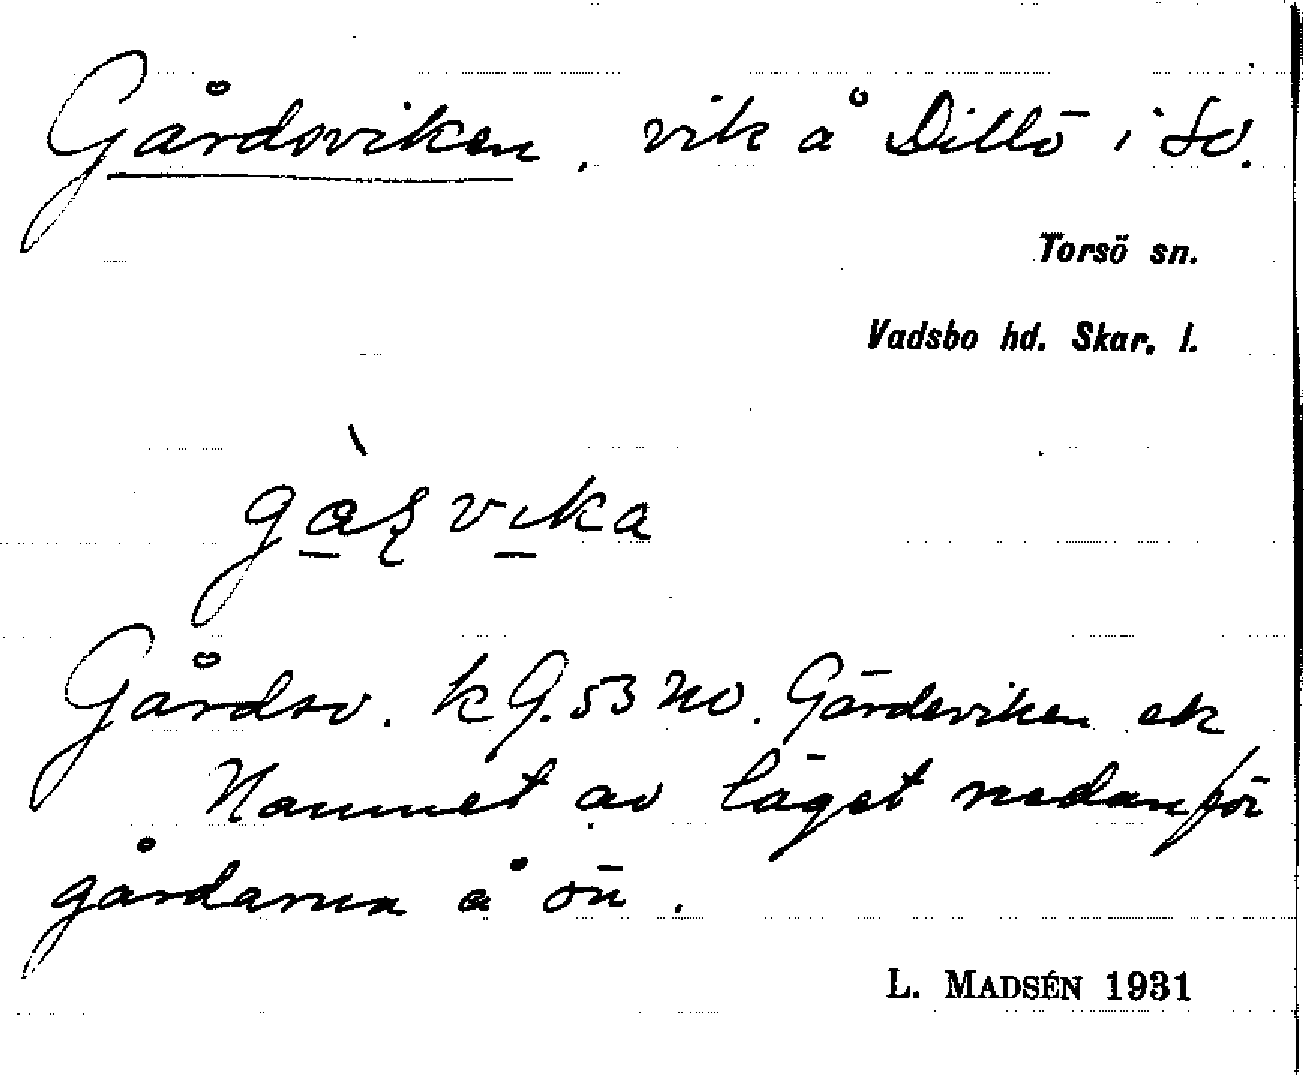 Gårdsviken, vik å Dillö i So.
Torsö sn.
Vadsbo hd. Skar. l.
gàꞩvika
Gårdsv. k G. 53 NO. Gärdeviken ek
Namnet av läget nedanför
gårdarna å ön.
L. MADSÉN 1931